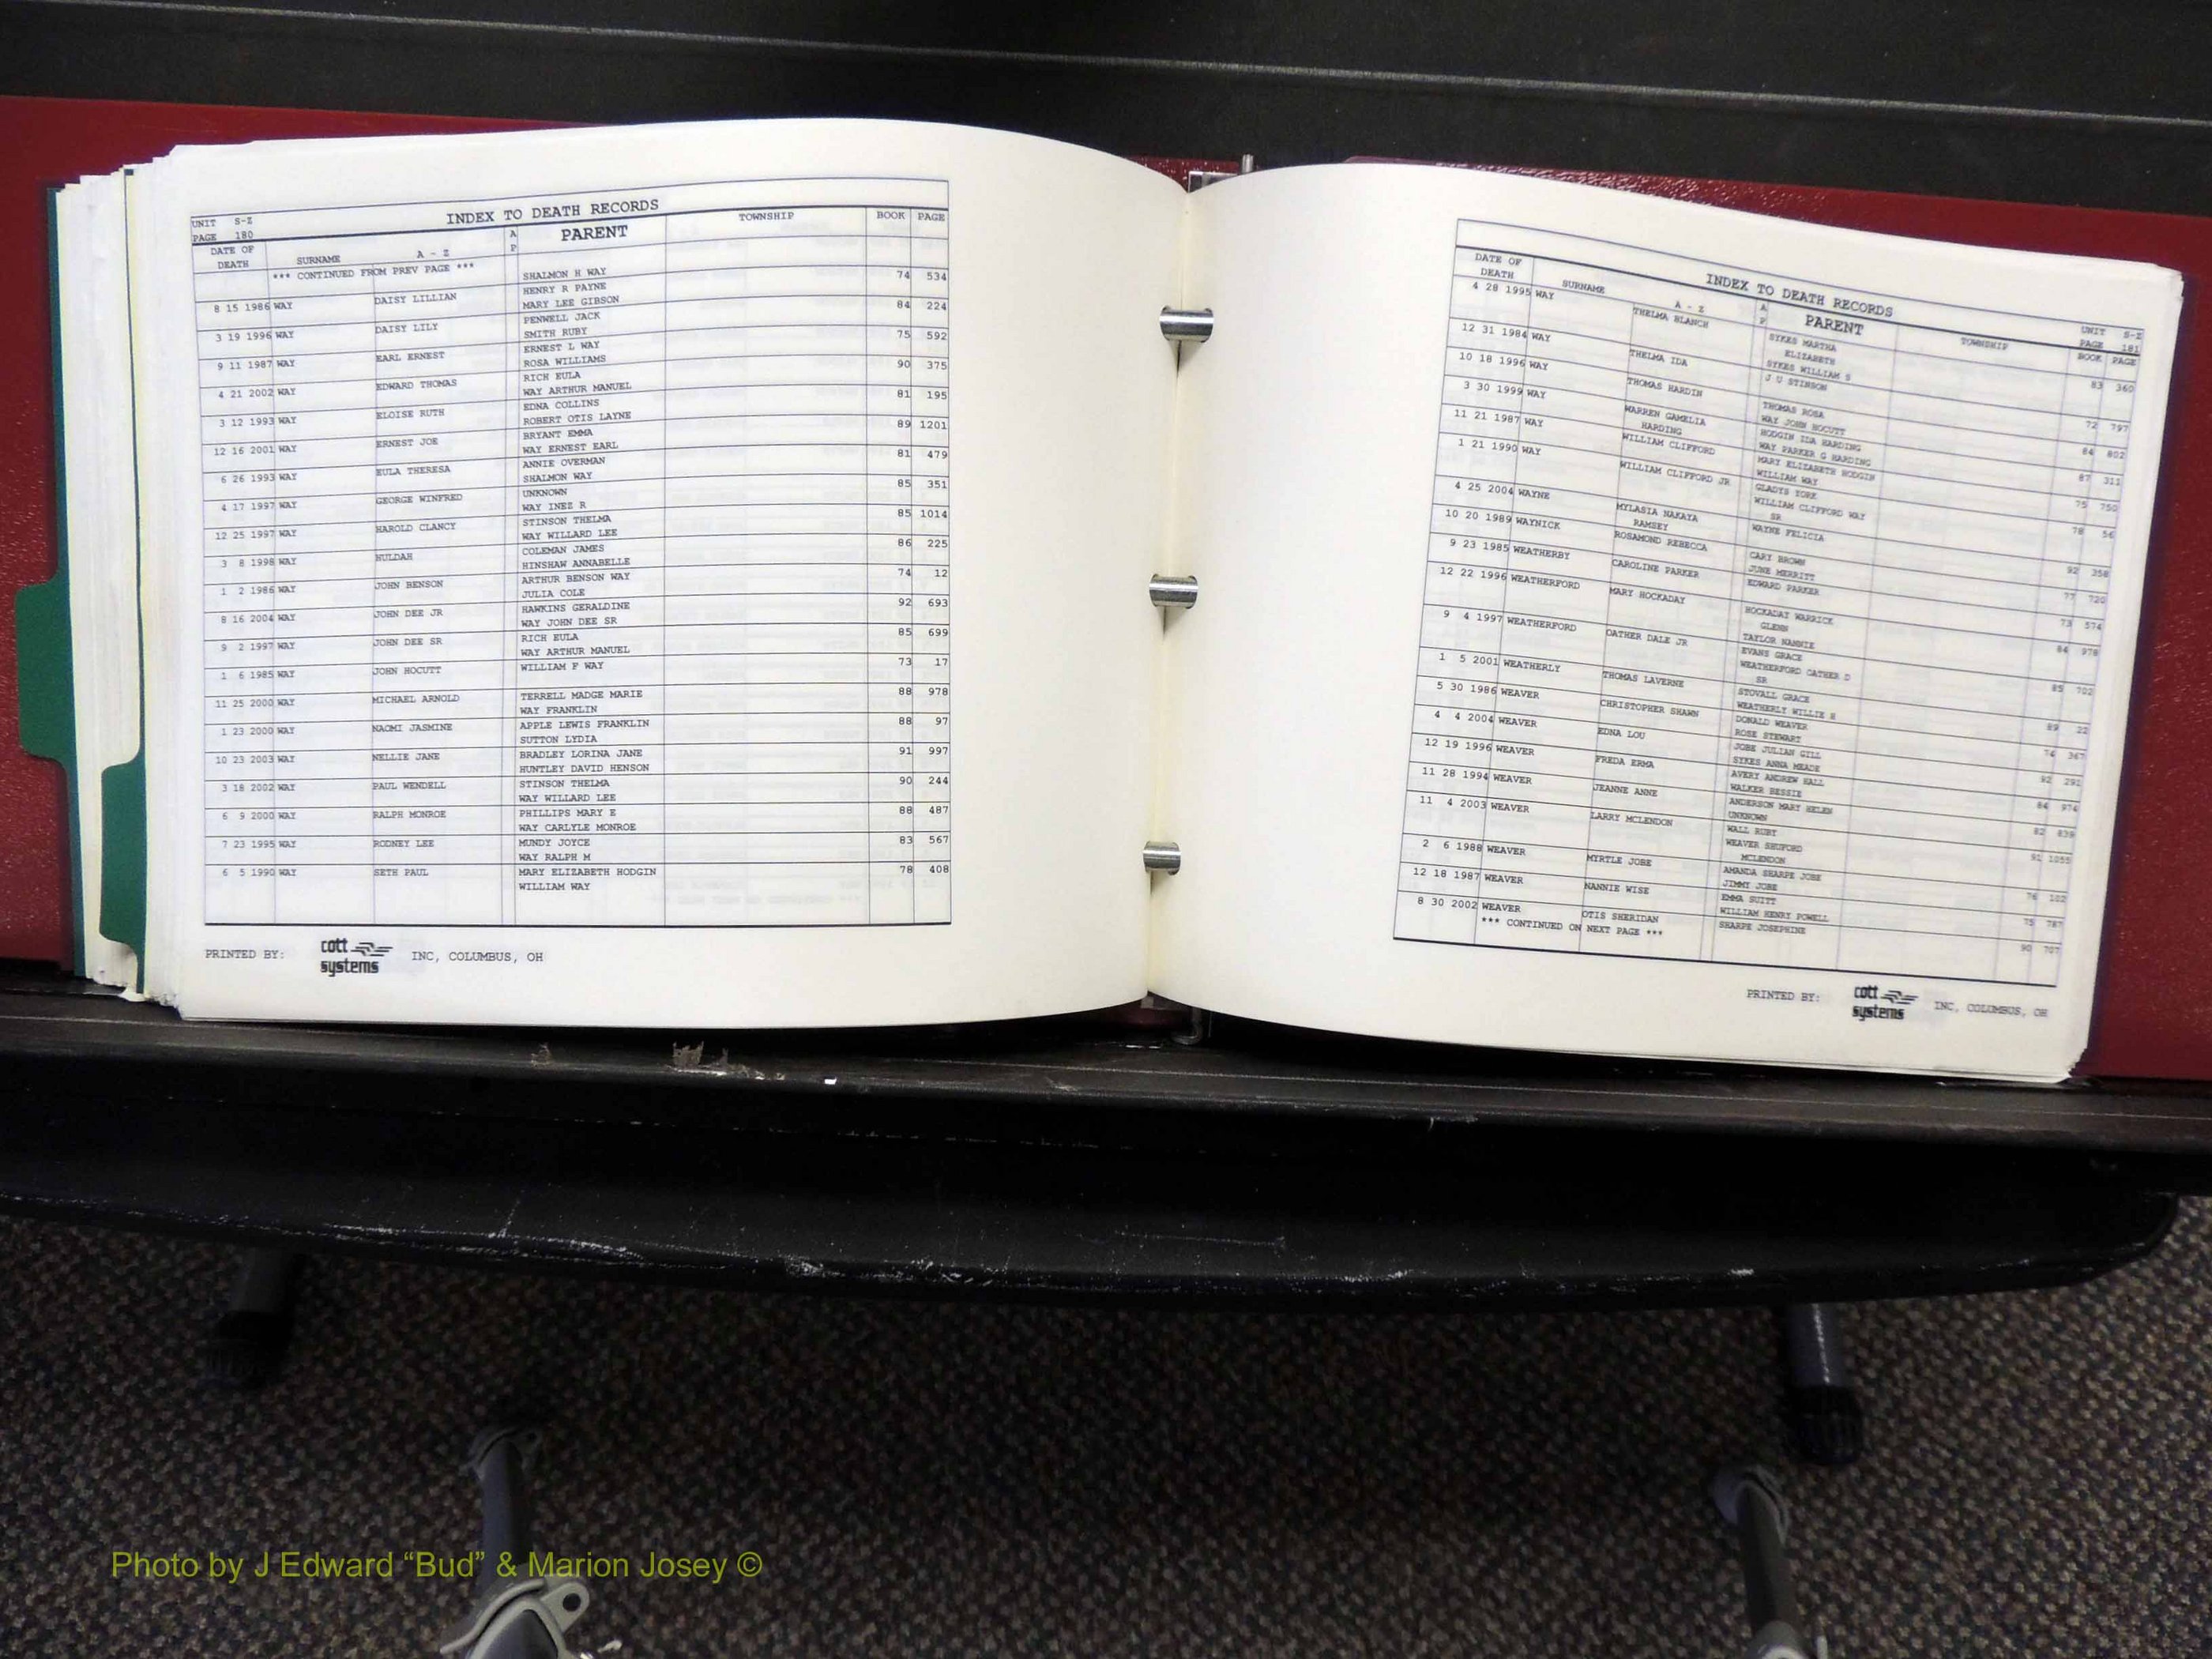 UNIT S-Z
PAGE 180
INDEX TO DEATH RECORDS
DATE OF DEATH SURNAME A - Z A P PARENT TOWNSHIP BOOK PAGE
*** CONTINUED FROM PREV PAGE *** SHALMON H WAY
8 15 1986 WAY DAISY LILLIAN HENRY R PAYNE 74 534
MARY LEE GIBSON
3 19 1996 WAY DAISY LILY PENWELL JACK 84 224
SMITH RUBY
9 11 1987 WAY EARL ERNEST ERNEST L WAY 75 592
ROSA WILLIAMS
4 21 2002 WAY EDWARD THOMAS RICH EULA 90 375
WAY ARTHUR MANUEL
3 12 1993 WAY ELOISE RUTH EDNA COLLINS 81 195
ROBERT OTIS LAYNE
12 16 2001 WAY ERNEST JOE BRYANT EMMA 89 1201
WAY ERNEST EARL
6 26 1993 WAY EULA THERESA ANNIE OVERMAN 81 479
SHALMON WAY
4 17 1997 WAY GEORGE WINFRED UNKNOWN 85 351
WAY INEZ R
12 25 1997 WAY HAROLD CLANCY STINSON THELMA 85 1014
WAY WILLARD LEE
3 8 1998 WAY HULDAH COLEMAN JAMES 86 225
HINSHAW ANNABELLE
1 2 1986 WAY JOHN BENSON ARTHUR BENSON WAY 74 12
JULIA COLE
8 16 2004 WAY JOHN DEE JR HAWKINS GERALDINE 92 693
WAY JOHN DEE SR
9 2 1997 WAY JOHN DEE SR RICH EULA 85 699
WAY ARTHUR MANUEL
1 6 1985 WAY JOHN HOCUTT WILLIAM F WAY 73 17
11 25 2000 WAY MICHAEL ARNOLD TERRELL MADGE MARIE 88 978
WAY FRANKLIN
1 23 2000 WAY NAOMI JASMINE APPLE LEWIS FRANKLIN 88 97
SUTTON LYDIA
10 23 2003 WAY NELLIE JANE BRADLEY LORINA JANE 91 997
HUNTLEY DAVID HENSON
3 18 2002 WAY PAUL WENDELL STINSON THELMA 90 244
WAY WILLARD LEE
6 9 2000 WAY RALPH MONROE PHILLIPS MARY E 88 487
WAY CARLYLE MONROE
7 23 1995 WAY RODNEY LEE MUNDY JOYCE 83 567
WAY RALPH M
6 5 1990 WAY SETH PAUL MARY ELIZABETH HODGIN 78 408
WILLIAM WAY
PRINTED BY: cott systems INC, COLUMBUS, OH
INDEX TO DEATH RECORDS
UNIT S-Z
PAGE 181
DATE OF DEATH SURNAME A - Z A P PARENT TOWNSHIP BOOK PAGE
4 28 1995 WAY THELMA BLANCH SYKES MARTHA ELIZABETH 83 360
SYKES WILLIAM S
12 31 1984 WAY THELMA IDA J U STINSON 72 797
THOMAS ROSA
10 18 1996 WAY THOMAS HARDIN WAY JOHN HOCUTT 84 802
HODGIN IDA HARDING
3 30 1999 WAY WARREN GAMELIA HARDING WAY PARKER G HARDING 87 311
11 21 1987 WAY WILLIAM CLIFFORD MARY ELIZABETH HODGIN 75 750
WILLIAM WAY
1 21 1990 WAY WILLIAM CLIFFORD JR GLADYS YORK 78 56
WILLIAM CLIFFORD WAY SR
4 25 2004 WAYNE MYLASIA NAKAYA RAMSEY WAYNE FELICIA 92 358
10 20 1989 WAYNICK ROSAMOND REBECCA CARY BROWN 77 720
JUNE MERRITT
9 23 1985 WEATHERBY CAROLINE PARKER EDWARD PARKER 73 574
12 22 1996 WEATHERFORD MARY HOCKADAY HOCKADAY WARRICK GLENN 84 978
TAYLOR NANNIE
9 4 1997 WEATHERFORD OATHER DALE JR EVANS GRACE 85 702
WEATHERFORD OATHER D SR
1 5 2001 WEATHERLY THOMAS LAVERNE STOVALL GRACE 89 22
WEATHERLY WILLIE H
5 30 1986 WEAVER CHRISTOPHER SHAWN DONALD WEAVER 74 367
ROSE STEWART
4 4 2004 WEAVER EDNA LOU JOBE JULIAN GILL 92 291
SYKES ANNA MEADE
12 19 1996 WEAVER FREDA ERMA AVERY ANDREW HALL 84 974
WALKER BESSIE
11 28 1994 WEAVER JEANNE ANNE ANDERSON MARY HELEN 82 839
UNKNOWN
11 4 2003 WEAVER LARRY MCLENDON WALL RUBY 91 1055
WEAVER SHUFORD MCLENDON
2 6 1988 WEAVER MYRTLE JOBE AMANDA SHARPE JOBE 76 102
JIMMY JOBE
12 18 1987 WEAVER NANNIE WISE EMMA SUITT 75 787
WILLIAM HENRY POWELL
8 30 2002 WEAVER OTIS SHERIDAN SHARPE JOSEPHINE 90 707
*** CONTINUED ON NEXT PAGE ***
PRINTED BY: cott systems INC, COLUMBUS, OH
Photo by J Edward “Bud” & Marion Josey ©